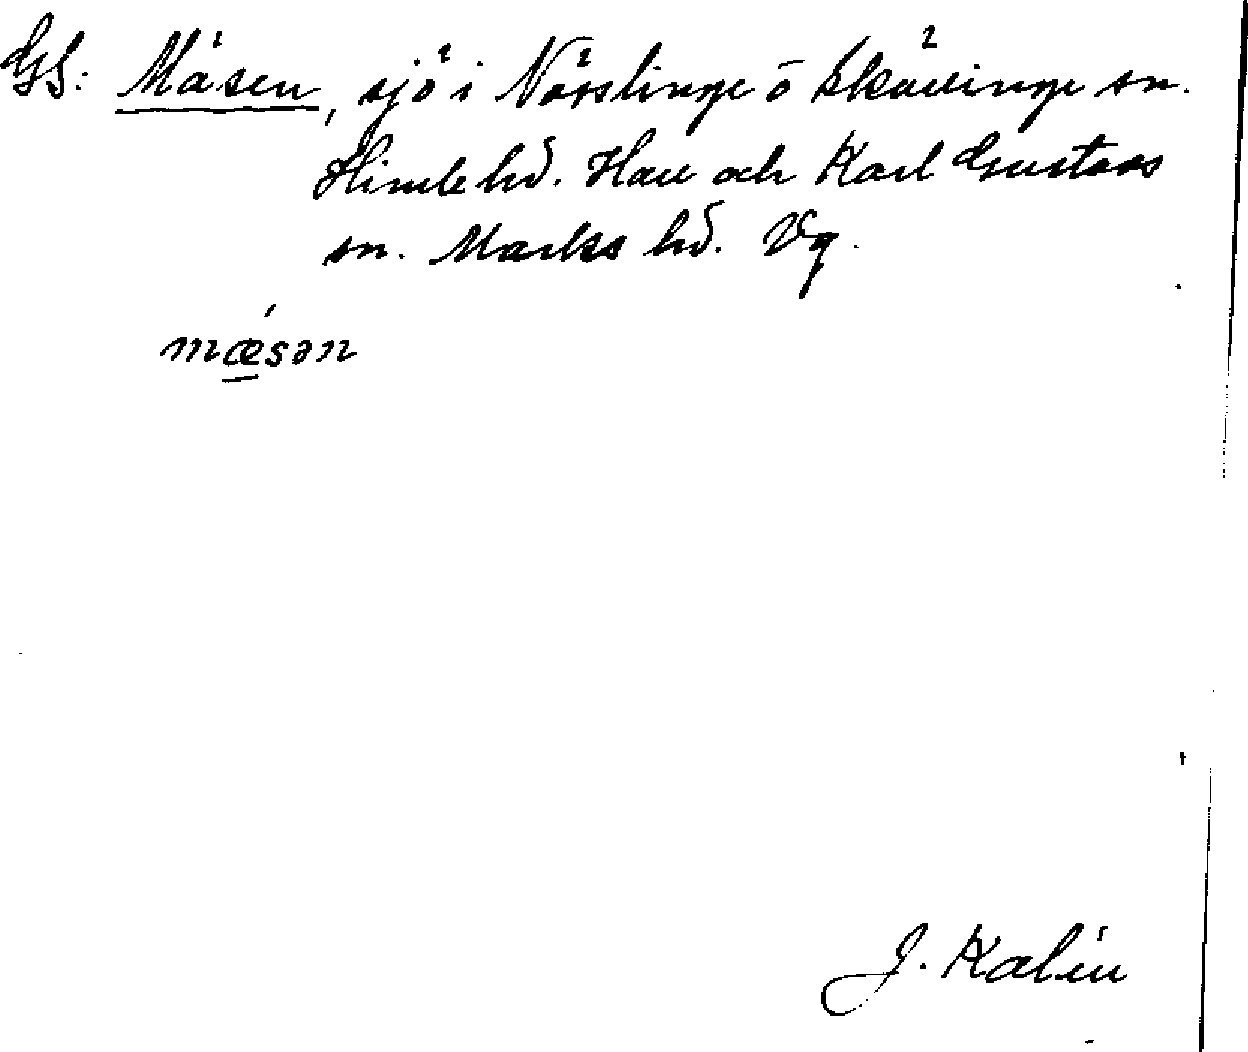 GS: Mäsen, sjö i Nösslinge o Skällinge sn.
Himle hd. Hall och Karl Gustavs
sn. Marks hd. Vg.
mǽsən
J. Kalén